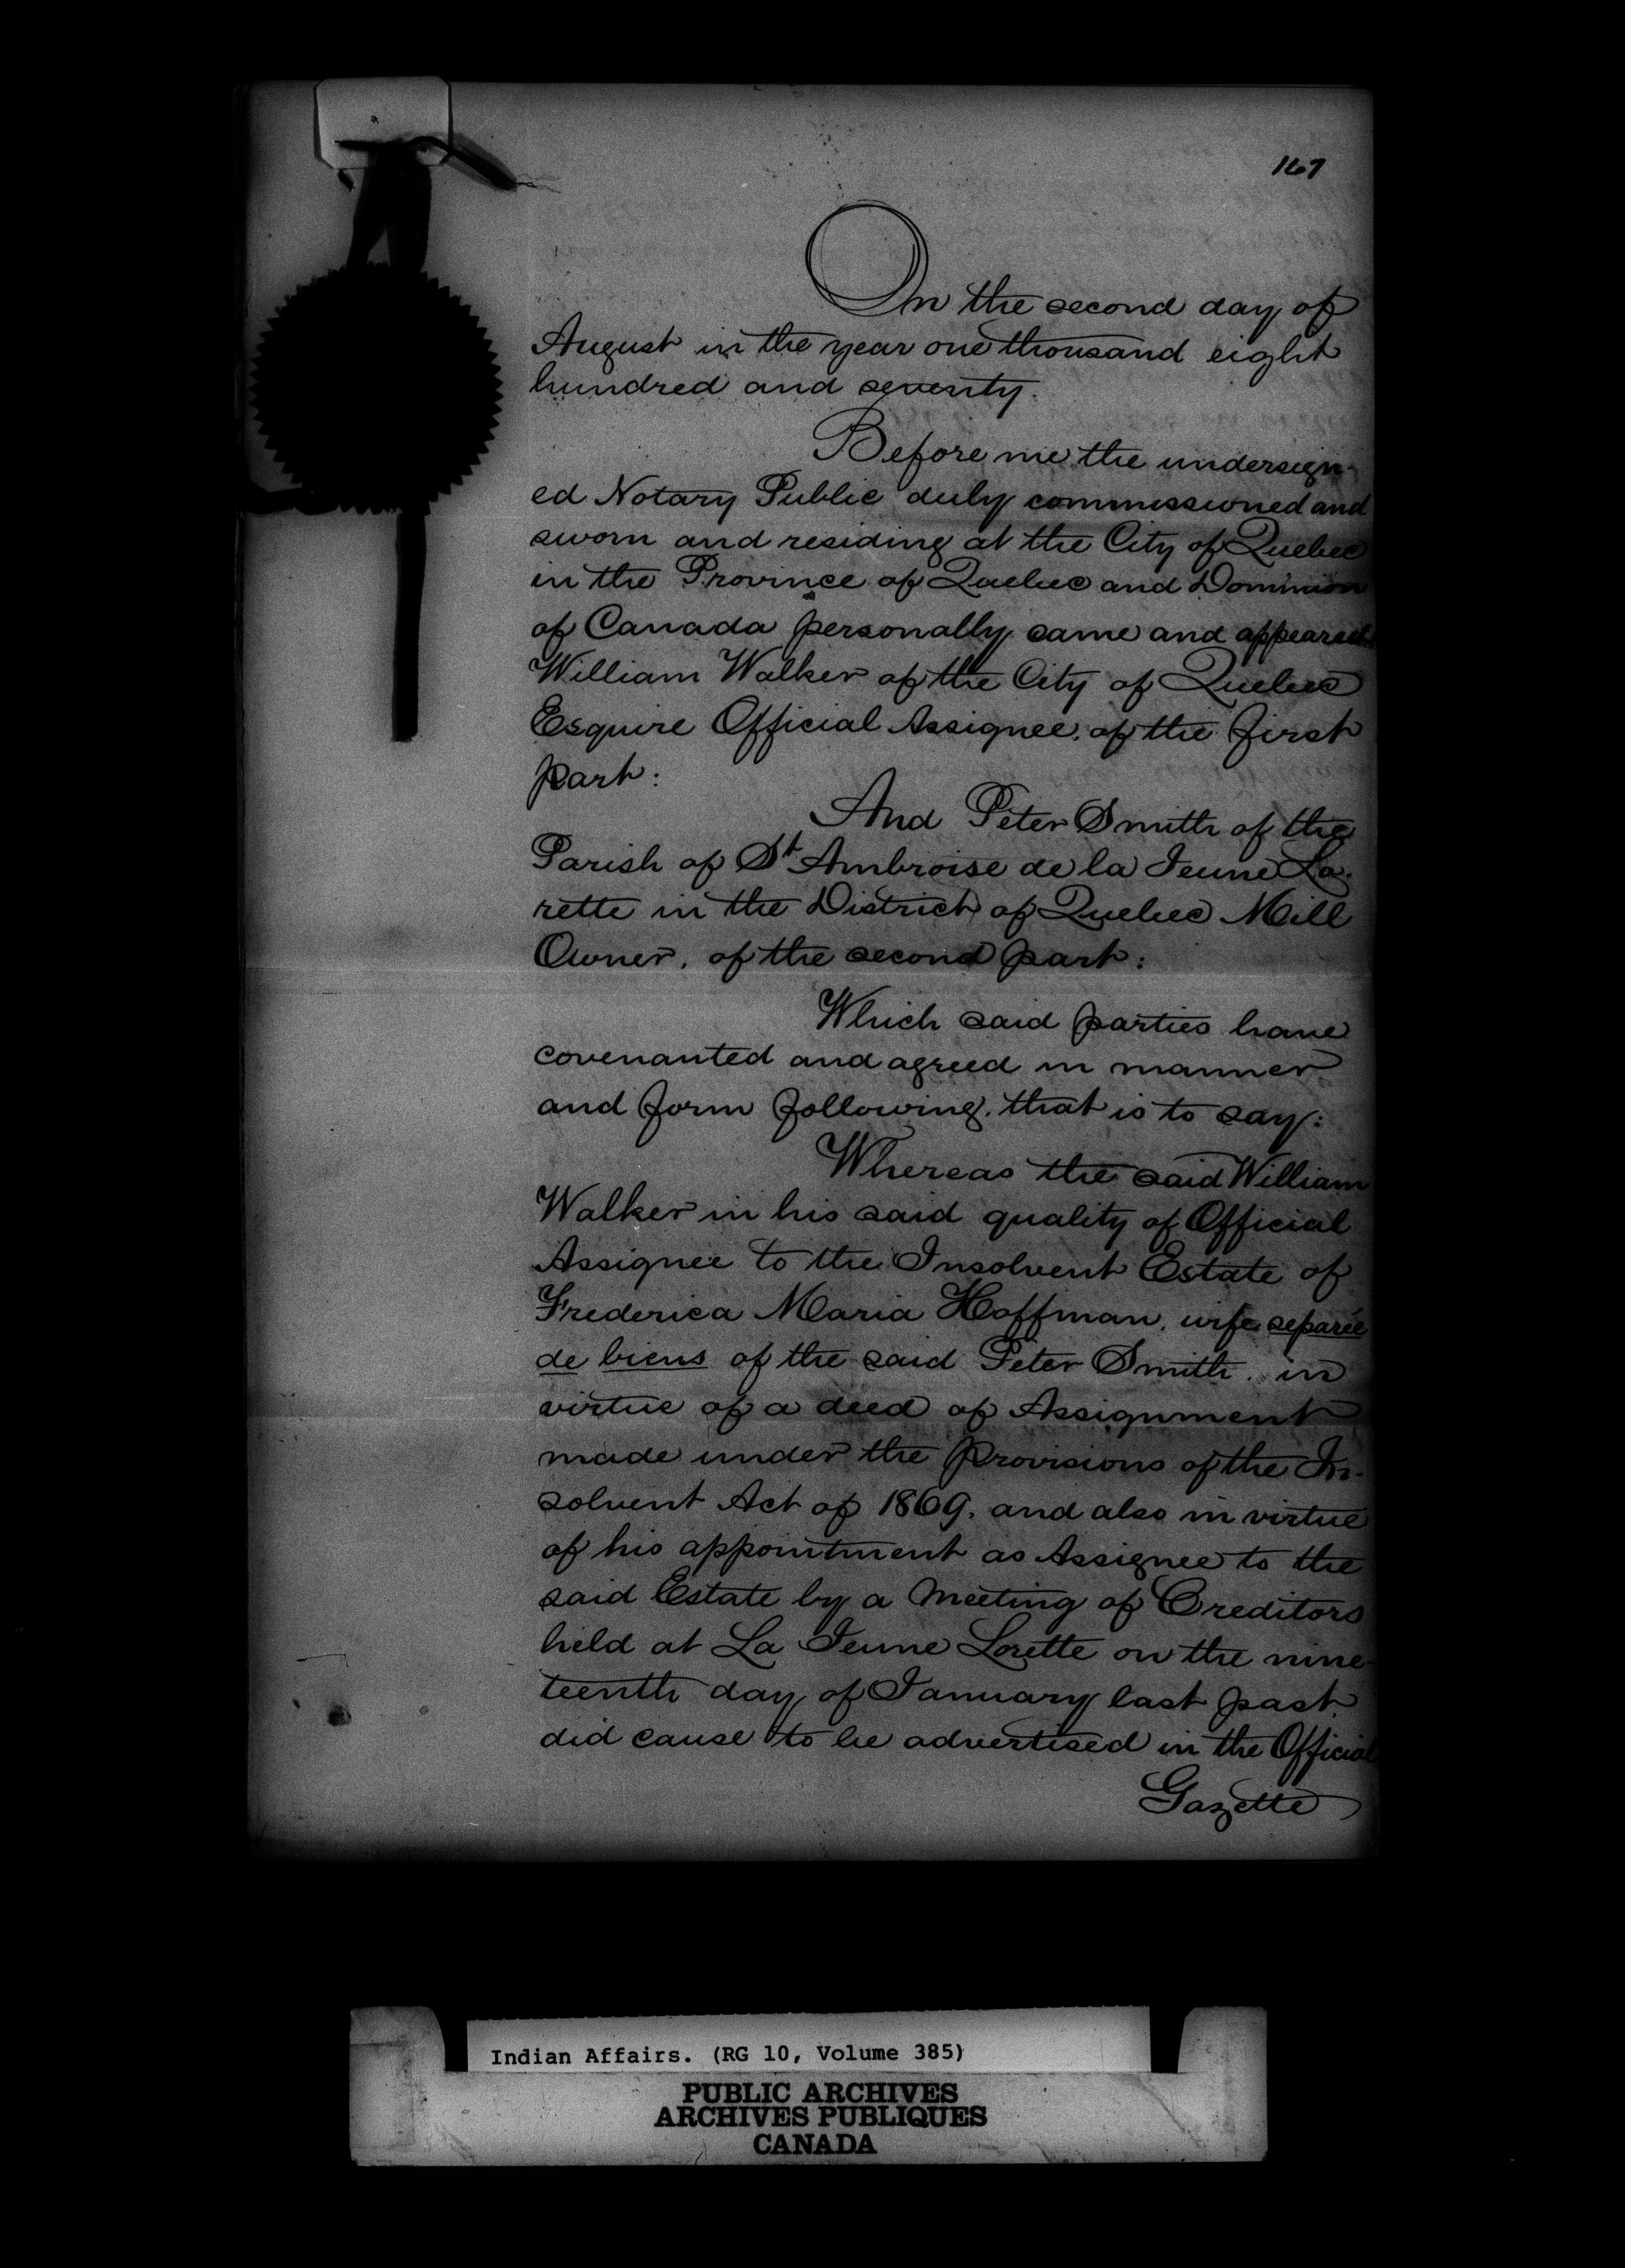 167
On the second day of
August in the year one thousand eight
hundred and seventy.
Before me the undersign-
ed Notary Public duly commissioned and
sworn and residing at the City of Quebec
in the Province of Quebec and Dominion
of Canada personally came and appeared
William Walker of the City of Quebec
Esquire Official Assignee, of the first
part:
And Peter Smith of the
Parish of St Ambroise de la Jeune Lo-
rette in the District of Quebec Mill
Owner, of the second part:
Which said parties have
covenanted and agreed in manner
and form following, that is to say:
Whereas the said William
Walker in his said quality of Official
Assignee to the Insolvent Estate of
Frederica Maria Hoffman, wife separée
de biens of the said Peter Smith, in
virtue of a deed of Assignment
made under the provisions of the In-
solvent Act of 1869, and also in virtue
of his appointment as Assignee to the
said Estate by a Meeting of Creditors
held at La Jeune Lorette on the nine-
teenth day of January last past,
did cause to be advertised in the Official
Gazette
Indian Affairs. (RG 10, Volume 385)
PUBLIC ARCHIVES
ARCHIVES PUBLIQUES
CANADA